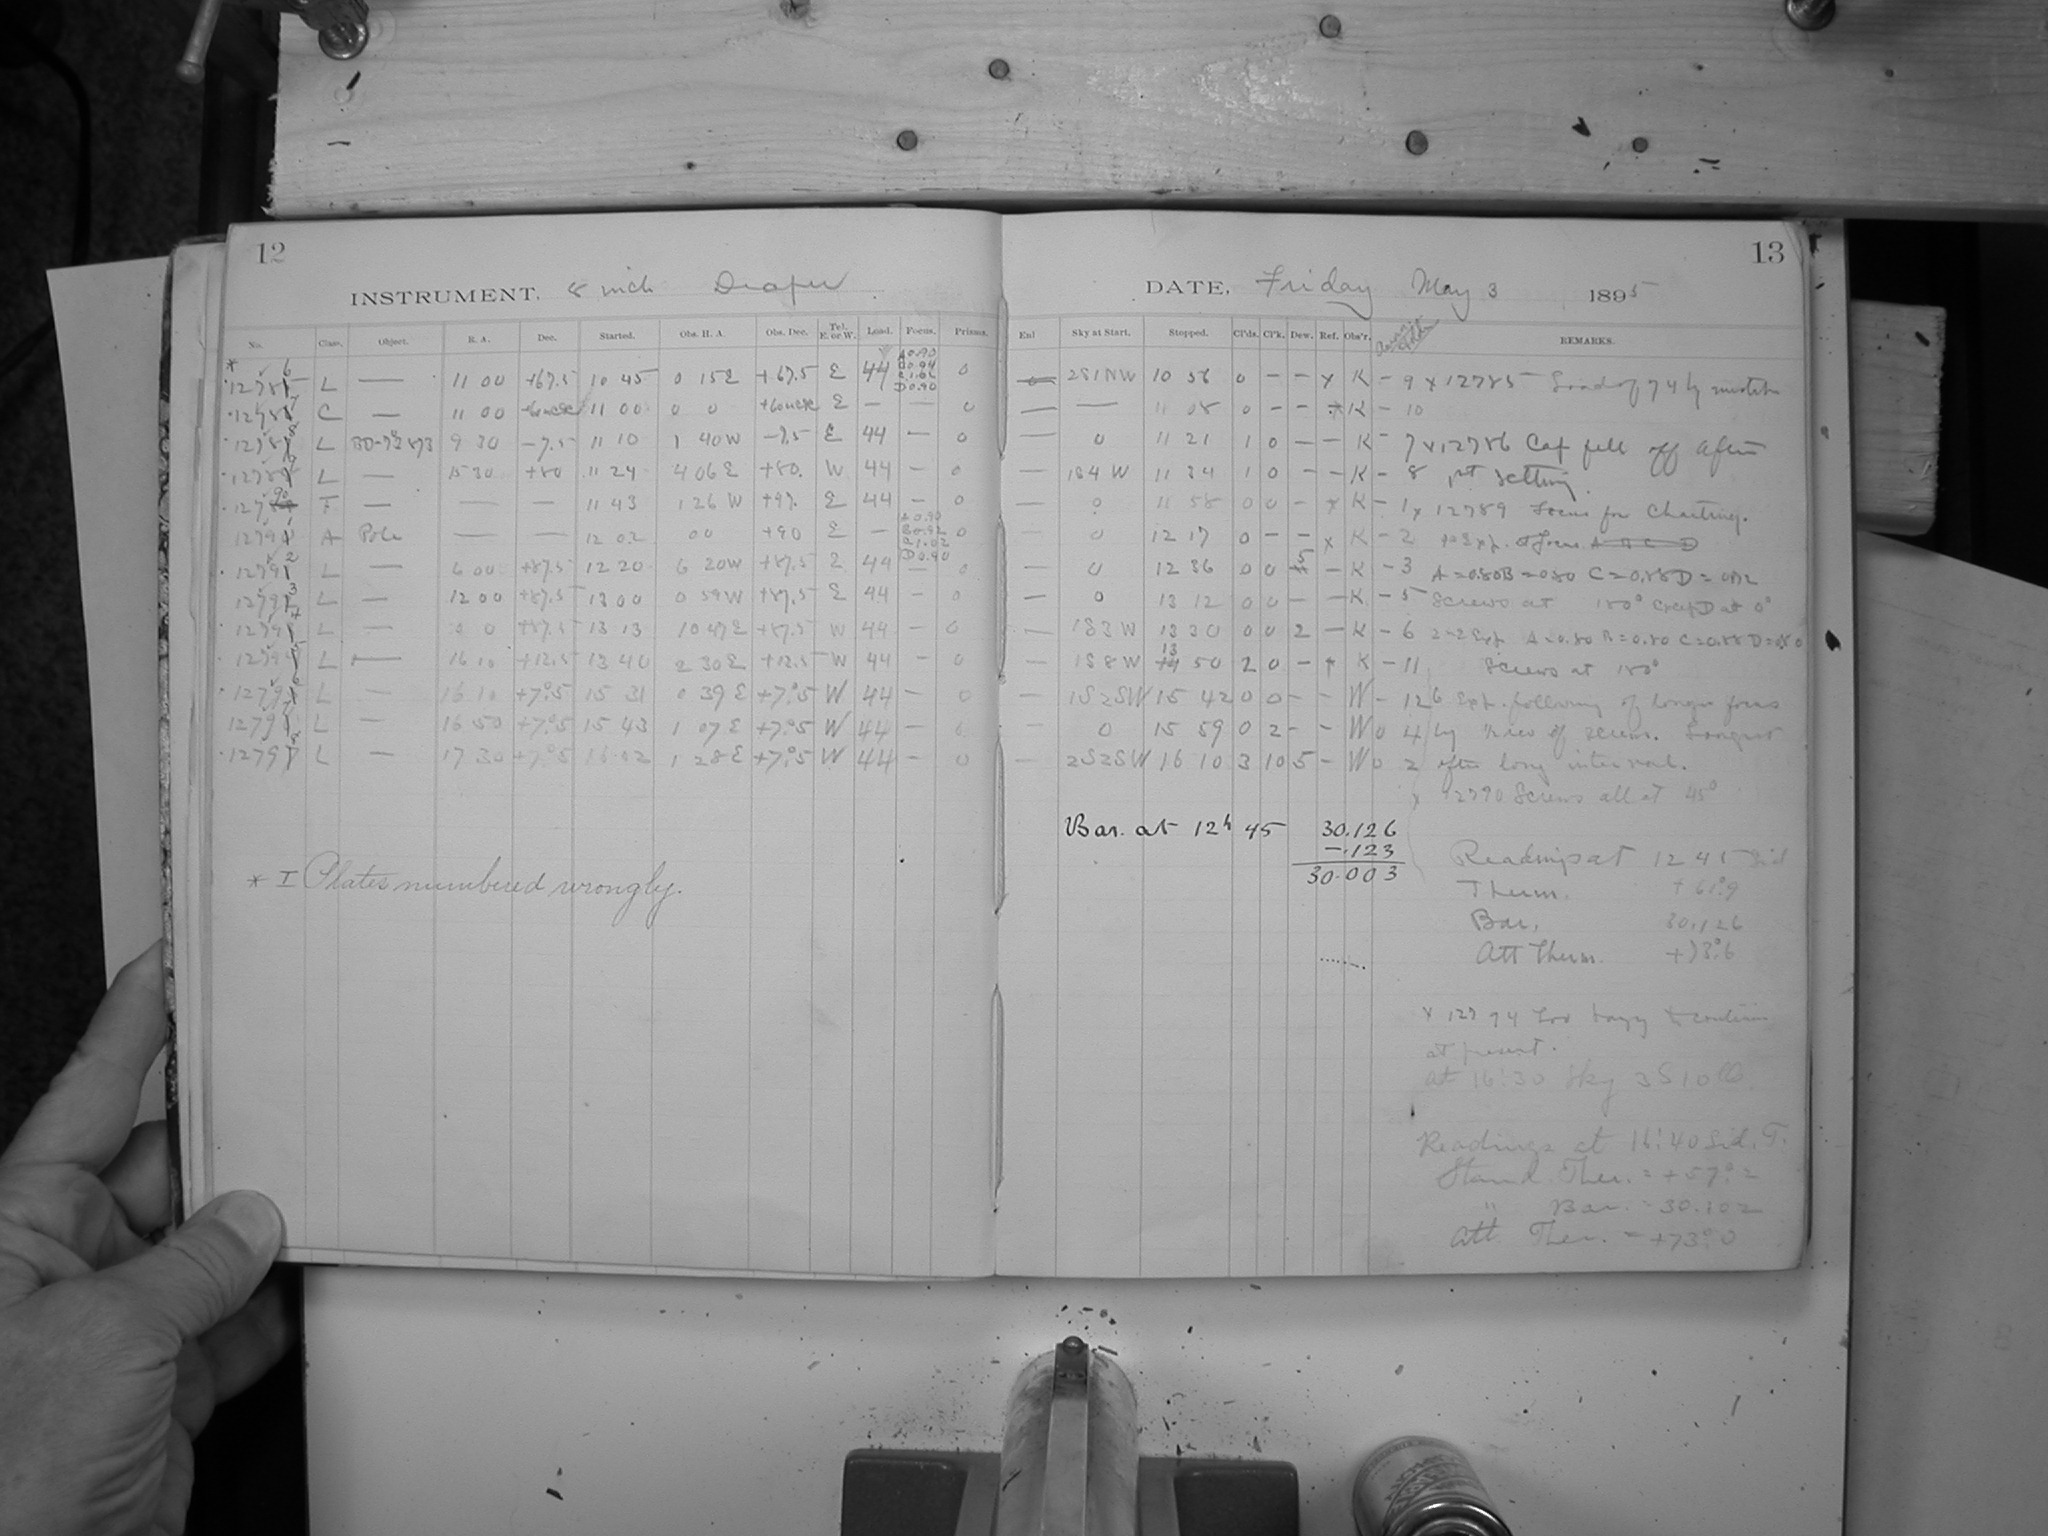 12
INSTRUMENT, 8 inch Draper
No. Class. Object. R. A. Dec. Started. Obs. H. A. Obs. Dec. Tel. E. or W. Load. Focus. Prisms.
L — 11 00 +67.5 10 45 0 15E +67.5 E 44 A 0.90 0
C — 11 00 11 00 0 0 E — — 0
L 9 30 -7.5 11 10 1 40W -7.5 E 44 — 0
L — 15 30 +80 11 24 4 06 E +80. W 44 — 0
F — — — 11 43 1 26 W E 44 — 0
A Pole — — 12 02 00 +90 E — A 0.90 B 0.92 C 1.02 D 0.90 0
L — 6 00 +87.5 12 20 6 20W +87.5 E 44 — 0
L — 12 00 +87.5 13 00 0 59W +87.5 E 44 — 0
L — 0 0 +87.5 13 13 10 47E +87.5 W 44 — 0
L — 16 10 +12.5 13 40 2 30E +12.5 W 44 — 0
L — 16 10 +7°.5 15 31 0 39 E +7°.5 W 44 — 0
L — 16 50 +7°.5 15 43 1 07 E +7°.5 W 44 — 0
L — 17 30 +7°.5 16 02 1 28E +7°.5 W 44 — 0
* I Plates numbered wrongly.
13
DATE, Friday May 3 1895
Enl Sky at Start. Stopped. Cl'ds. Cl'k. Dew. Ref. Obs'r. REMARKS.
2S1NW 10 56 0 — — x K — 9 x 12785
— — 11 08 0 — — K — 10
— 0 11 21 1 0 — — K — 7 x 12786 Cap fell off after
— 1S4 W 11 34 1 0 — — K — 8 1st setting.
— 0 11 58 0 0 — x K — 1 x 12789 Focus for Charting.
— 0 12 17 0 — — x K — 2
— 0 12 36 0 0 5 — K — 3 A=0.80 B=0.80 C=0.88 D=
— 0 13 12 0 0 — — K — 5 Screws at 180° except D at 0°
— 1S3 W 13 30 0 0 2 — K — 6 A=0.80 B=0.80 C=0.88 D=0.80
— 1S8W 13 50 2 0 — K — 11 Screws at 180°
— 1S2SW 15 42 0 0 — — W — 12 6 Exp. following of longer focus
— 0 15 59 0 2 — — W 0 4 by of screws. Longest
— 2S2SW 16 10 3 10 5 — W 0 2 after long interval.
x 12790 Screws all at 45°
Bar. at 12h 45 30.126
-.123
30.003
Readings at 12 45 Sid
Therm. + 61°.9
Bar. 30.126
Att Therm. +73°.6
x 12794 Too hazy to continue
at present.
at 16:30 Sky 3S10
Readings at 16:40 Sid. T.
Stand. Ther. = +57°.2
" Bar. = 30.102
Att. Ther. = +73°.0